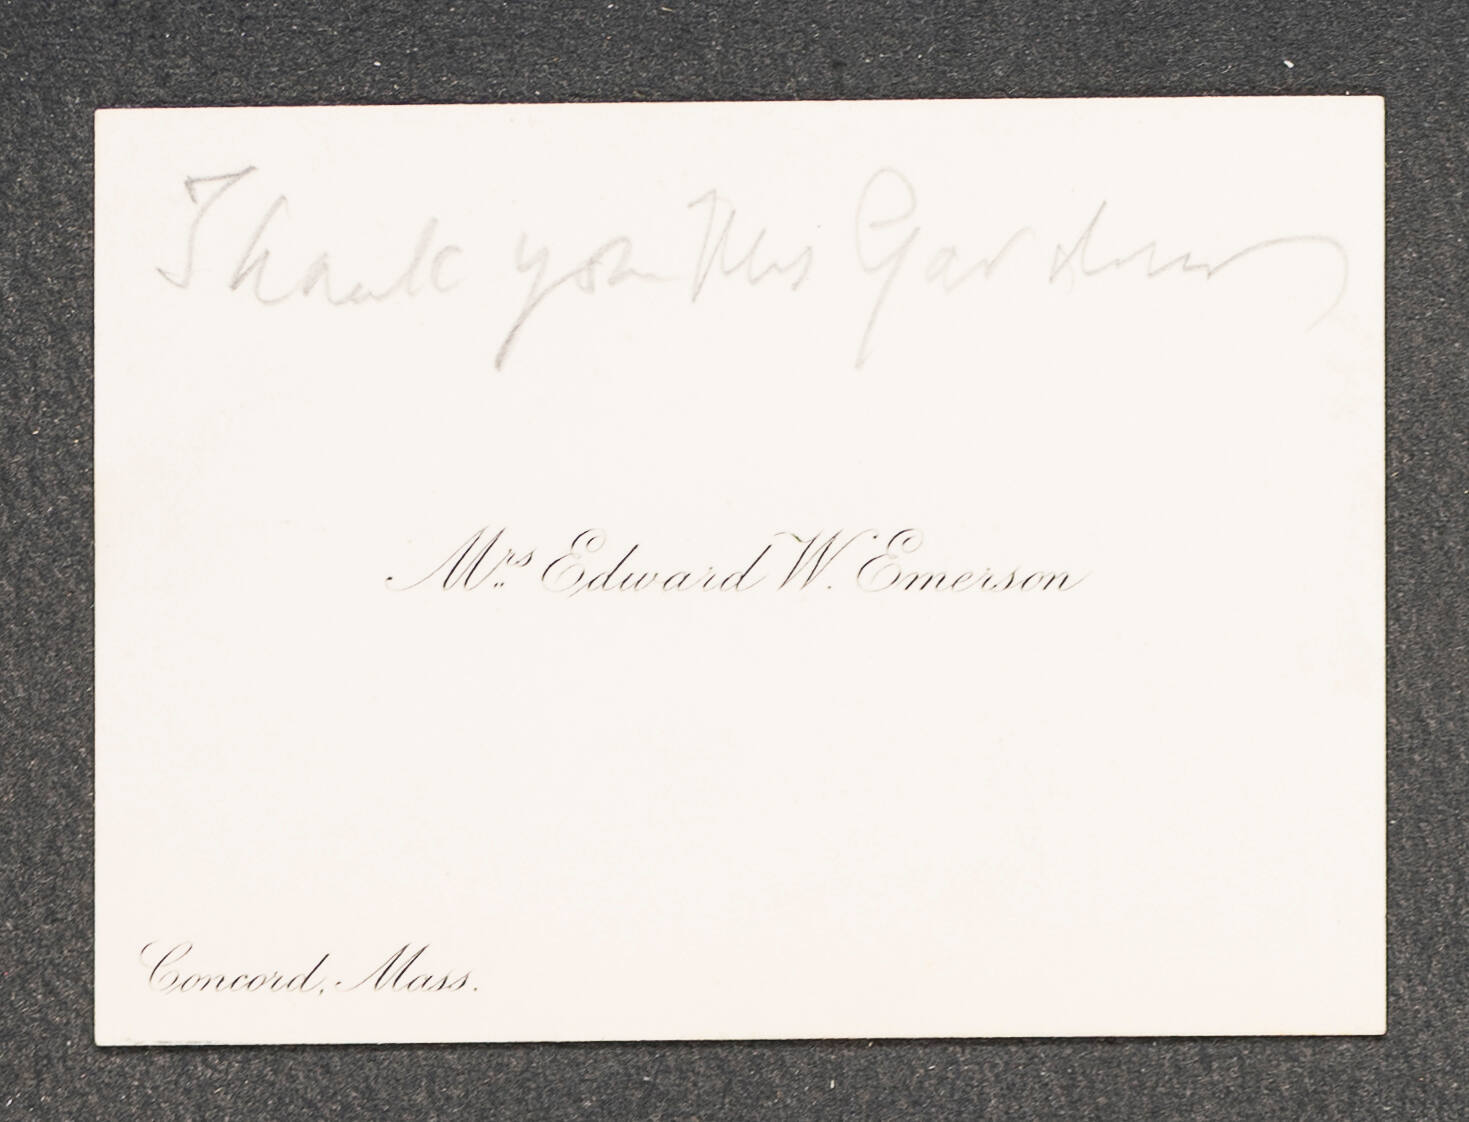 Thank you Mrs Gardner
Mrs Edward W. Emerson
Concord, Mass.